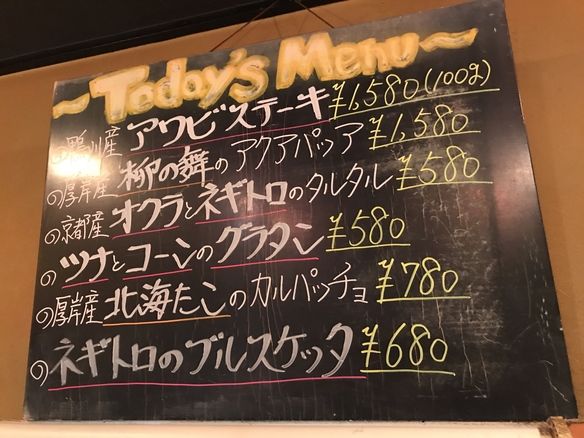 ~Today's Menu~
鴨川産 アワビステーキ ¥1,580(100g)
厚岸産 柳の舞のアクアパッツァ ¥1,580
京都産 オクラとネギトロのタルタル ¥580
ツナとコーンのグラタン ¥580
厚岸産 北海たこのカルパッチョ ¥780
ネギトロのブルスケッタ ¥680